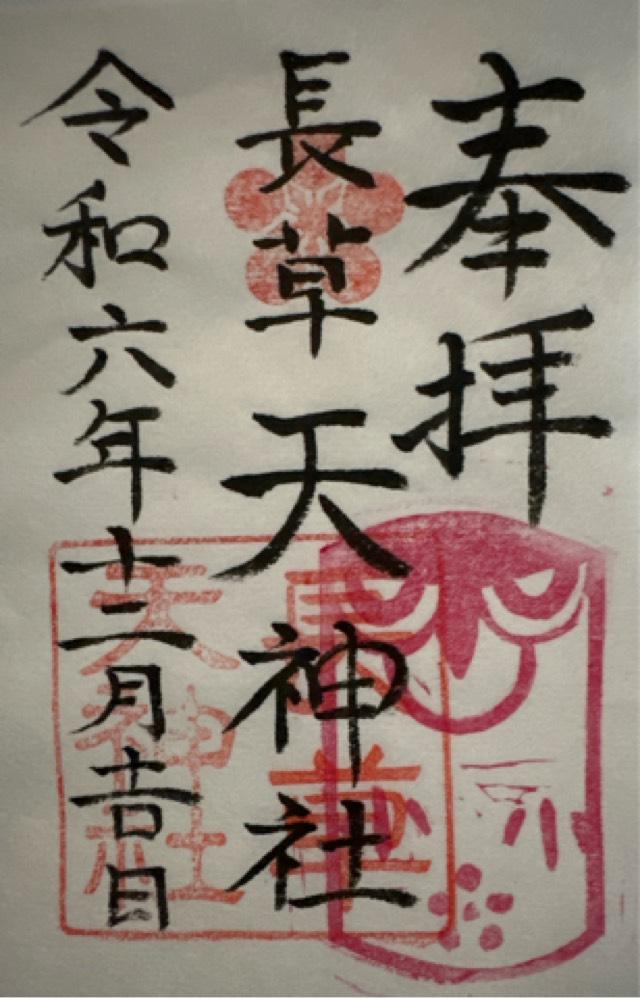 奉拝
長草天神社
令和六年十二月吉日
長草
天神社